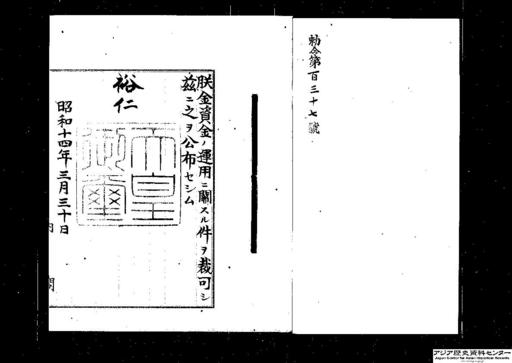 勅令第百三十七號
朕金資金ノ運用ニ關スル件ヲ裁可シ
茲ニ之ヲ公布セシム
裕仁
天皇御璽
昭和十四年三月三十日
内閣
アジア歴史資料センター
Japan Center for Asian Historical Records